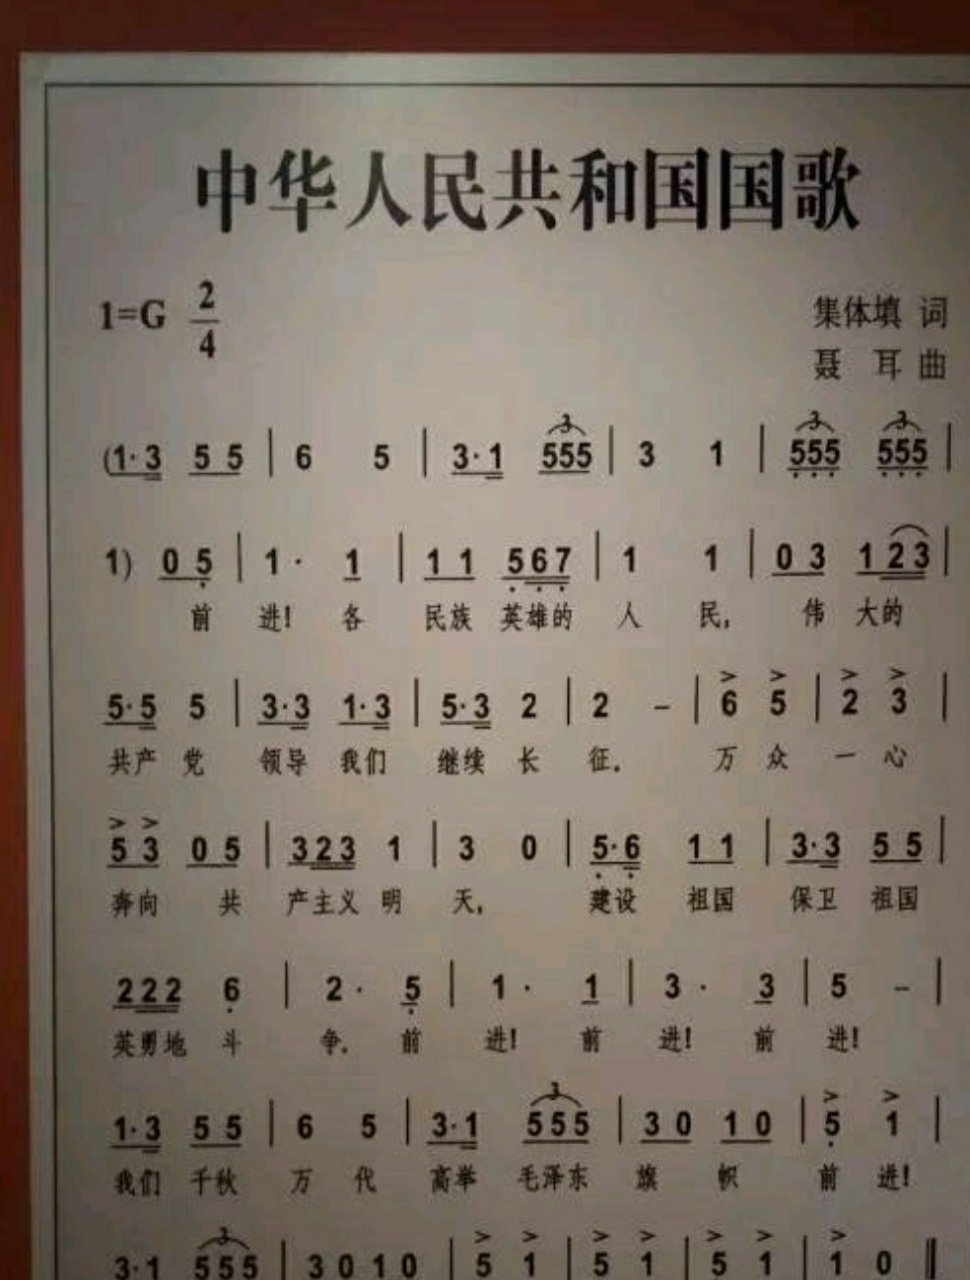 中华人民共和国国歌
1=G 2/4
集体填 词
聂 耳 曲
(1·3 5 5 | 6 5 | 3·1 555 | 3 1 | 555 555 |
1) 0 5 | 1· 1 | 1 1 567 | 1 1 | 0 3 1 23 |
前 进! 各 民族 英雄的 人 民, 伟 大的
5·5 5 | 3·3 1·3 | 5·3 2 | 2 – | 6 5 | 2 3 |
共产 党 领导 我们 继续 长 征. 万 众 一 心
5 3 0 5 | 323 1 | 3 0 | 5·6 1 1 | 3·3 5 5 |
奔向 共 产主义 明 天, 建设 祖国 保卫 祖国
222 6 | 2· 5 | 1· 1 | 3· 3 | 5 – |
英勇地 斗 争. 前 进! 前 进! 前 进!
1·3 5 5 | 6 5 | 3·1 555 | 3 0 1 0 | 5 1 |
我们 千秋 万 代 高举 毛泽东 旗 帜 前 进!
3·1 555 | 3 0 1 0 | 5 1 | 5 1 | 5 1 | 1 0 ‖